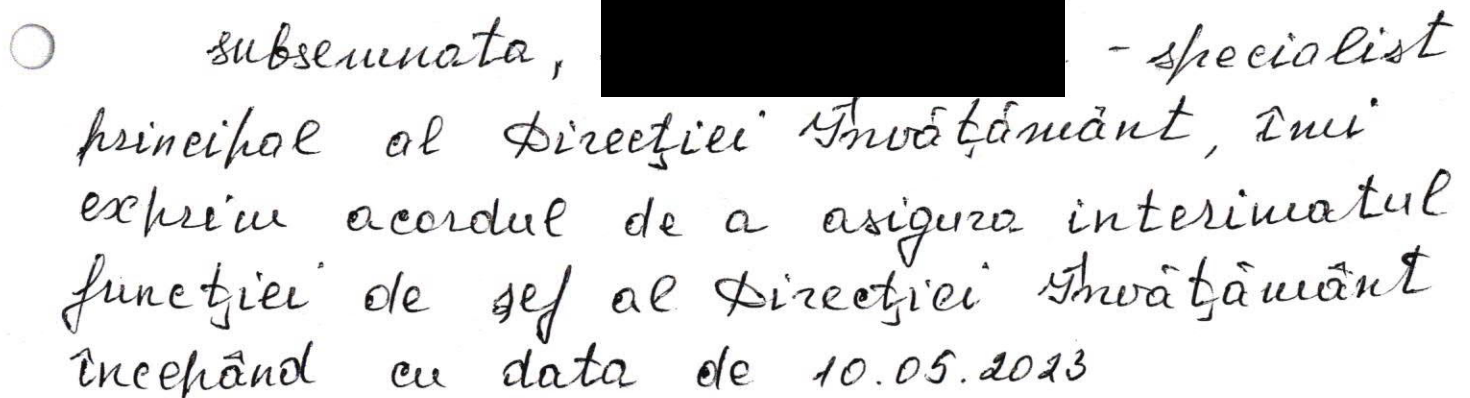 subsemnata, - specialist
principal al Direcției Învățământ, îmi
exprim acordul de a asigura interimatul
funcției de șef al Direcției Învățământ
începând cu data de 10.05.2023